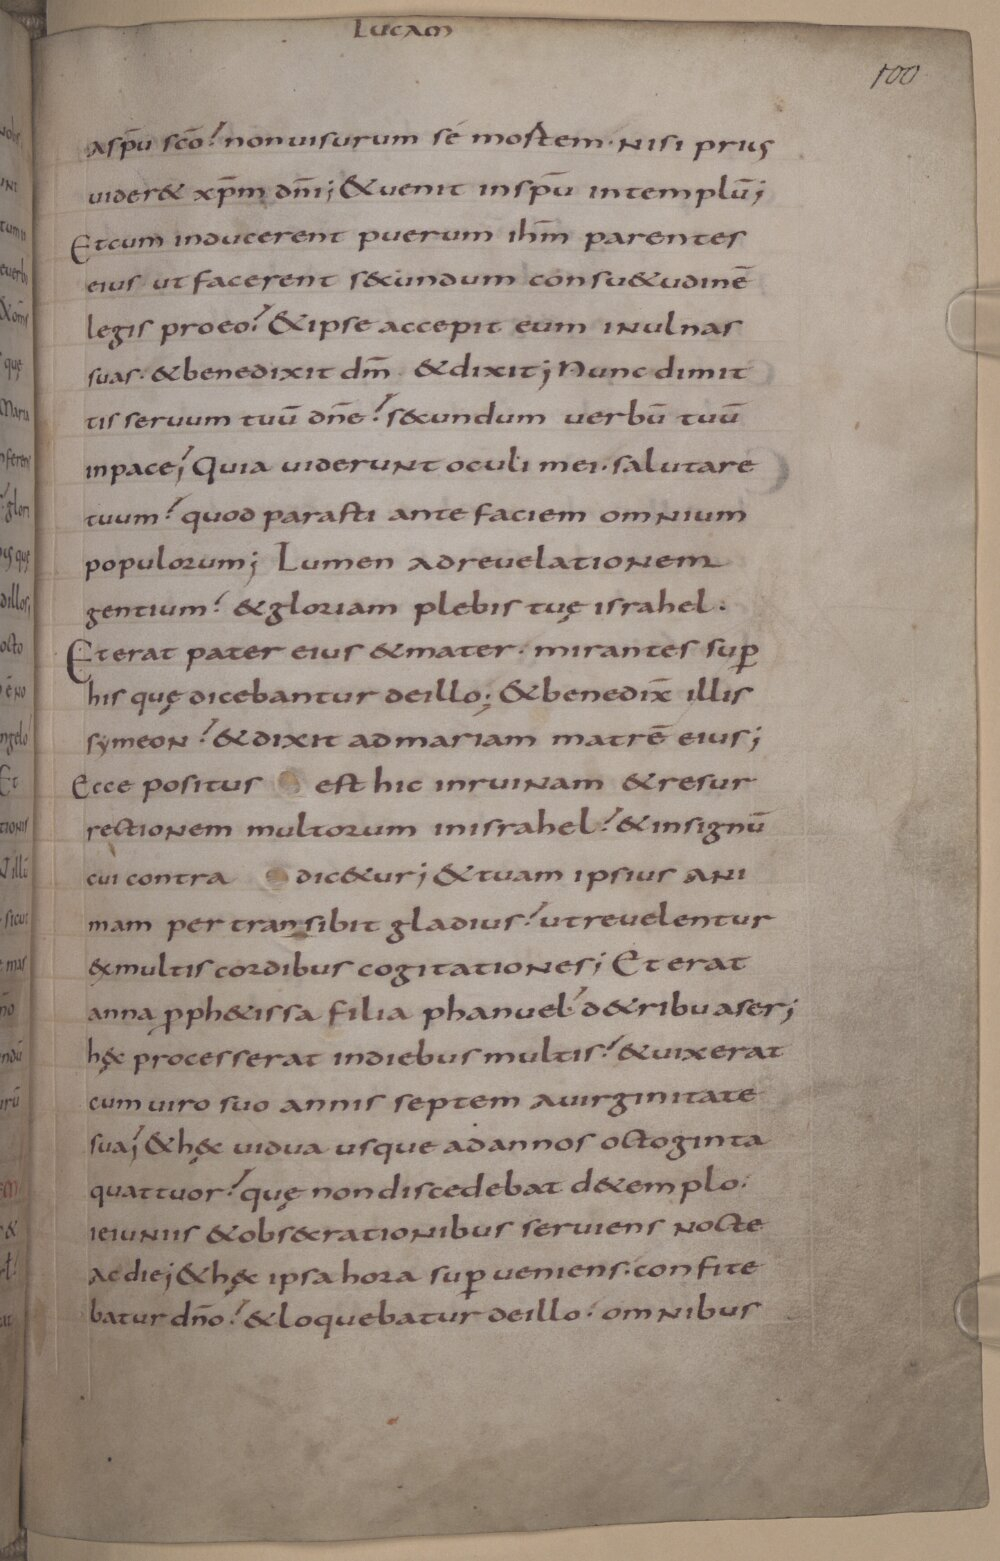 Lucam
100
aspū scō? non uisurum se mortem· nisi prius
uider& xp̄m dn̄i; & uenit in spū in templū;
Et cum inducerent puerum ihm̄ parentes
eius ut facerent s&cundum consu&udinē
legis pro eo? & ipse accepit eum in ulnas
suas· & benedixit dm̄· & dixit; Nunc dimit
tis seruum tuū dn̄e? s&cundum uerbū tuū
in pace; Quia uiderunt oculi mei· salutare
tuum? quod parasti ante faciem omnium
populorum; Lumen ad reuelationem
gentium? & gloriam plebis tuę israhel·
Et erat pater eius & mater· mirantes sup̄
his quę dicebantur de illo; & benedix̄ illis
symeon? & dixit ad mariam matrē eius;
Ecce positus est hic in ruinam & resur
rectionem multorum in israhel? & in signū
cui contra dic&ur; & tuam ipsius ani
mam per transibit gladius? ut reuelentur
ex multis cordibus cogitationes; Et erat
anna p̄ph&issa filia phanuel? de tribu aser;
hęc processerat in diebus multis? & uixerat
cum uiro suo annis septem a uirginitate
sua; & hęc uidua usque ad annos octoginta
quattuor? quę non discedebat de templo·
ieiuniis & obs&crationibus seruiens nocte
ac die; & hęc ipsa hora sup̄ueniens· confite
batur dn̄o? & loquebatur de illo· omnibus